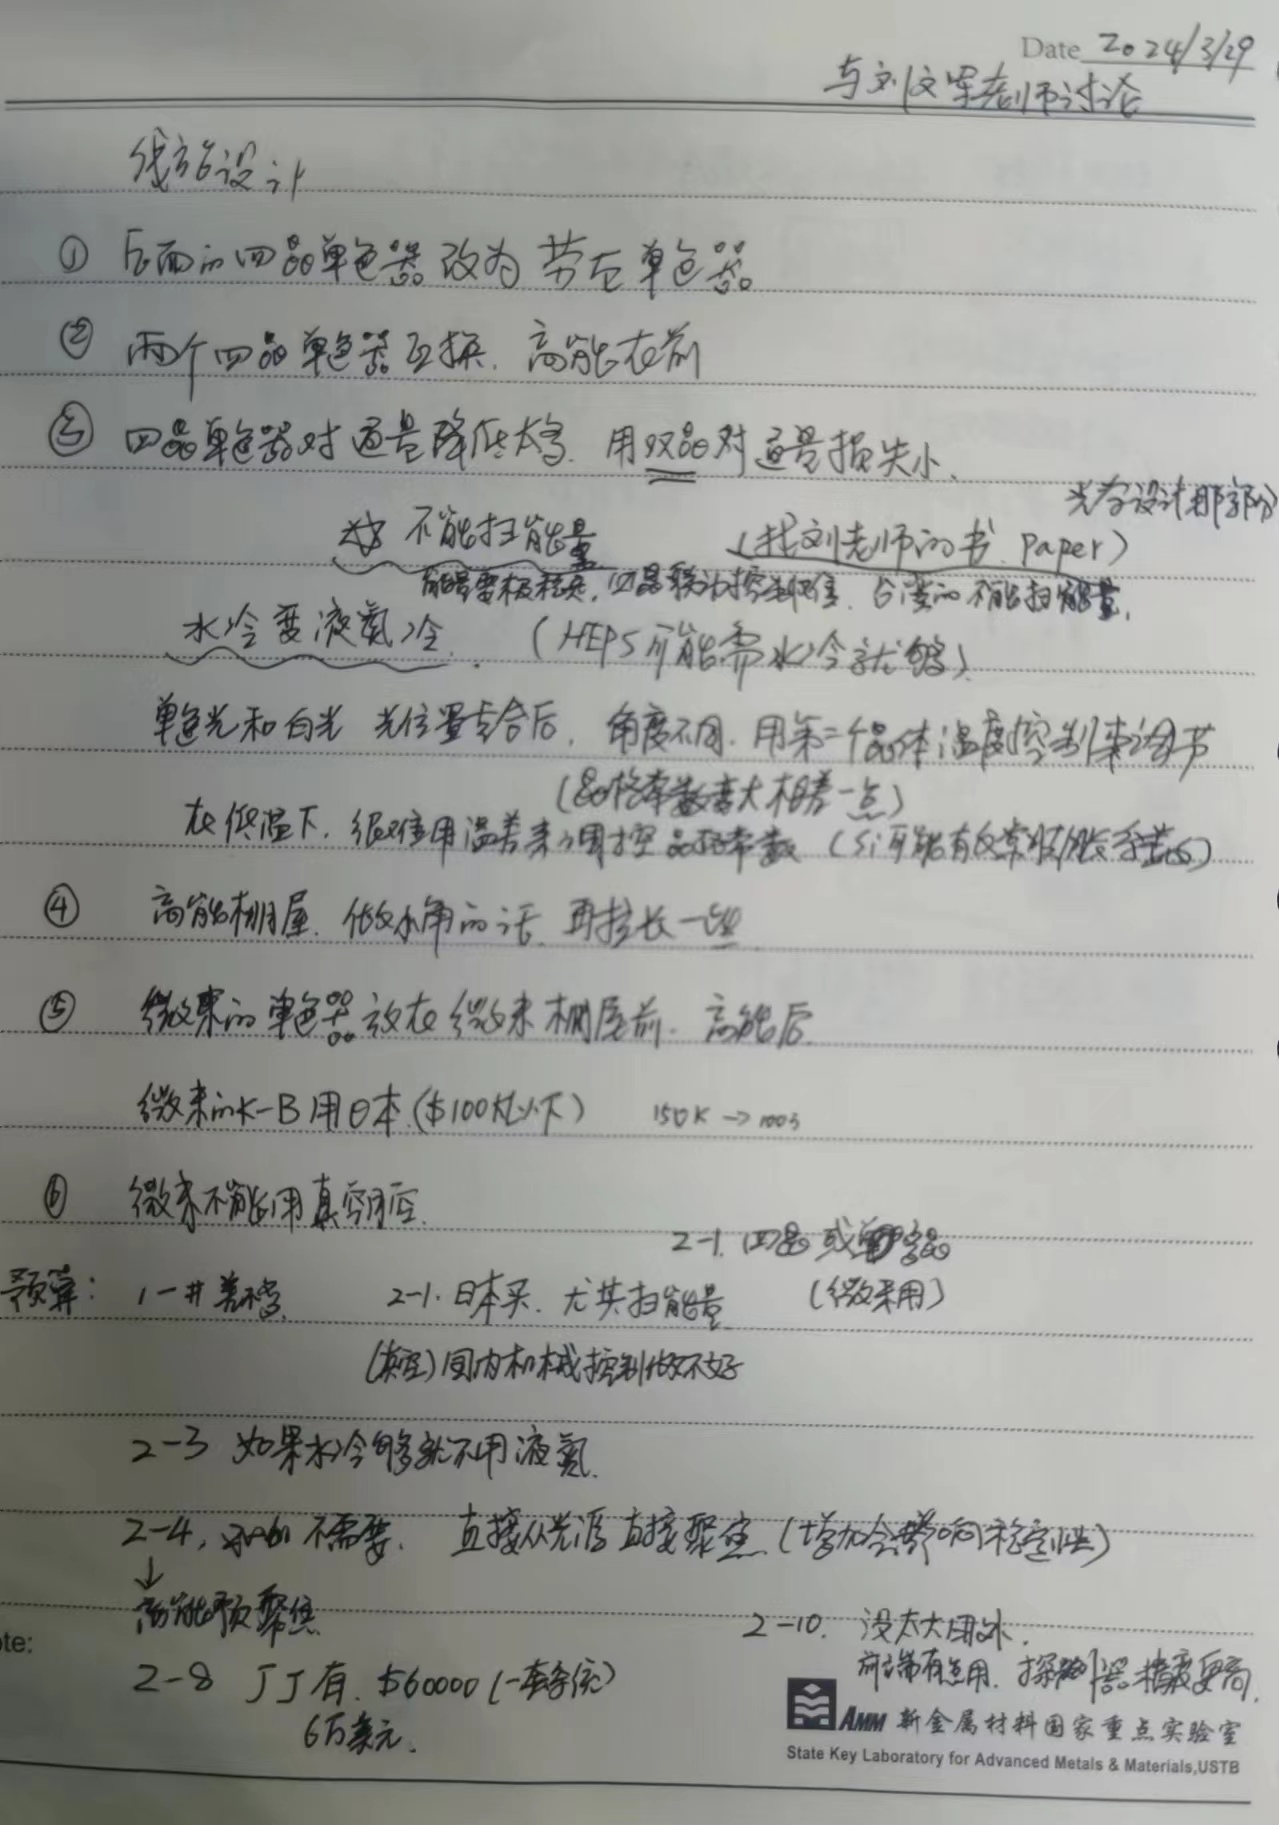 Date 2024/3/29
与刘文军老师讨论
线站设计
① 后面的四晶单色器改为劳厄单色器
② 两个四晶单色器互换. 高能在前
③ 四晶单色器对通量降低太多. 用双晶对通量损失小.
光学设计那部分
不能扫能量 (找刘老师的书. Paper)
能量要极稳定, 四晶较为控制恒. 台湾的不能扫能量.
水冷变液氮冷. (HEPS可能需水冷就够)
单色光和白光 光位置重合后, 角度不同. 用第二个晶体温度控制来调节
(晶格常数高大相差一点)
在低温下, 很难用温差来调控晶格常数 (Si可能有反常膨胀系数)
④ 高能棚屋. 做小角的话. 再拉长一些
⑤ 微束的单色器放在微束棚屋前. 高能后.
微束的K-B用日本. ($100K以下) 150K →100多
⑥ 微束不能用真空腔.
2-1. 四晶或单晶
预算: 1-井差不多. 2-1. 日本买. 尤其扫能量 (微束用)
(真空) 国内机械控制做不好
2-3 如果水冷够就不用液氮.
2-4, 不需要. 直接从光源直接聚焦 (增加会影响稳定性)
↓
高能预聚焦
2-10. 没太大用处.
te:
2-8 JJ有. $60000 (一套系统) 前端有点用. 探测器精度更高.
6万美元.
AMM 新金属材料国家重点实验室
State Key Laboratory for Advanced Metals & Materials,USTB